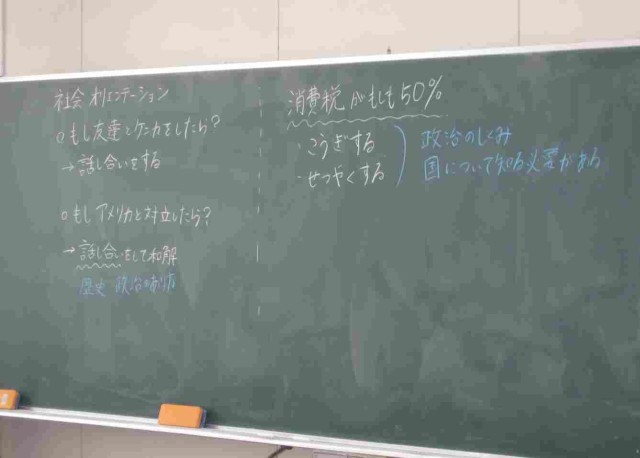 社会 オリエンテーション
○もし友達とケンカをしたら?
→話し合いをする
○もしアメリカと対立したら?
→話し合いをして和解
歴史 政治のあり方
消費税がもしも50%
・こうぎする
・せつやくする
政治のしくみ
国について知る必要がある